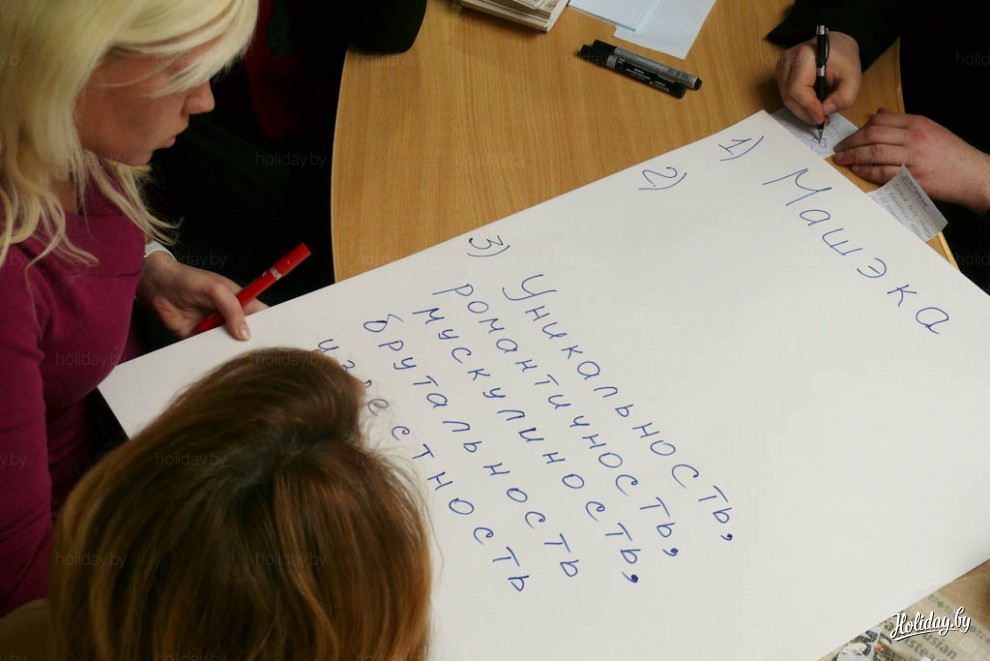 1) Машэка
2)
3) Уникальность,
романтичность,
мускулинность,
брутальность
известность
Holiday.by